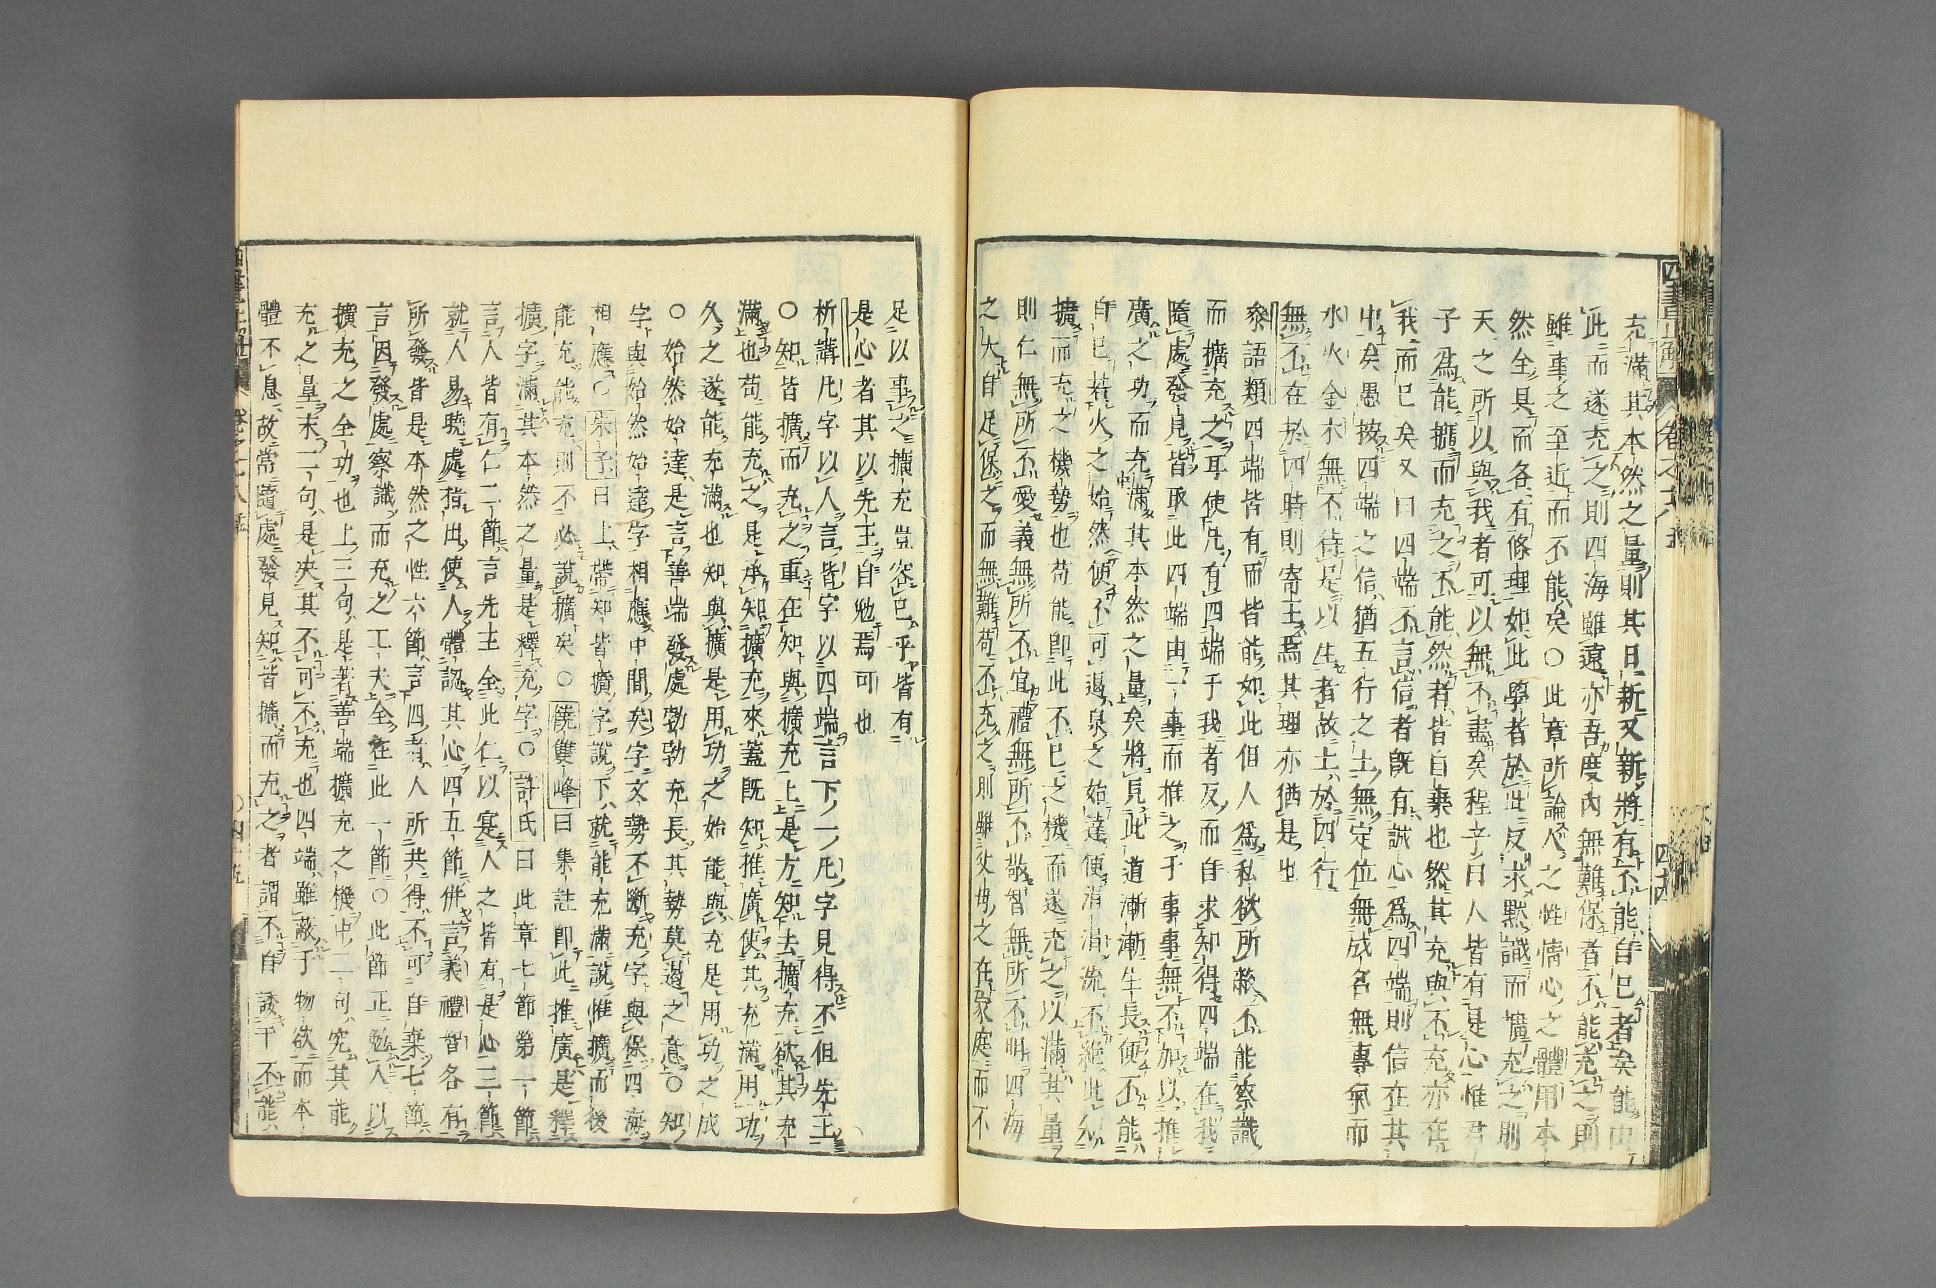 充滿其本然之量則其日新又新將有不能自已者矣能由
此而遂充之則四海雖遠亦吾度內無難保者不能充之則
雖事之至近而不能矣〇此章所論人之性情心之體用本
然全具而各有條理如此學者於此反求默識而擴充之則
天之所以與我者可以無不盡矣程子曰人皆有是心惟君
子爲能擴而充之不能然者皆自棄也然其充與不充亦在
我而已矣又曰四端不言信者既有誠心爲四端則信在其
中矣愚按四端之信猶五行之土無定位無成名無專氣而
水火金木無不待是以生者故土於四行
無不在於四時則寄王焉其理亦猶是也
參語類四端皆有而皆能如此但人爲私欲所蔽不能察識
而擴充之耳使凡有四端于我者反而自求知得四端在我
隨處發見皆取此四端由一事而推之于事事無不加以推
廣之功而充滿其本然之量矣將見此道漸漸生長便不能
自已若火之始然便不可遏泉之始達便涓涓流不絕此知
擴而充之機勢也苟能卽此不已之機而遂充之以滿其量
則仁無所不愛義無所不宜禮無所不敬智無所不明四海
之大自足保之而無難苟不充之則雖父母之在家庭而不
足以事之擴充豈容已乎皆有
是心者其以先王自勉焉可也
析講凡字以人言皆字以四端言下一凡字見得不但先王
〇知皆擴而充之重在知與擴充上是方知去擴充欲其充
滿也苟能充之是承知擴充來蓋既知推廣使其充滿用功
久之遂能充滿也知與擴是用功之始能與充是用功之成
〇始然始達是言善端發處勃勃充長其勢莫遏之意〇知
字與始然始達字相應中間矣字文勢不斷充字與保四海
相應〇朱子曰上帶知皆擴字說下就能充滿說惟擴而後
能充能充則不必說擴矣〇饒雙峰曰集註卽此推廣是釋
擴字滿其本然之量是釋充字〇許氏曰此章七節第一節
言人皆有仁二節言先王全此仁以寔人之皆有是心三節
就人易曉處指出使人體認其心四五節併言義禮智各有
所發皆是本然之性六節言四者人所共得不可自棄七節
言因發處察識而充之工夫全在此一節〇此節正勉人以
擴充之全功也上三句是著善端擴充之機中二句究其能
充之量末二句是決其不可不充也四端雖蔽于物欲而本
體不息故常隨處發見知皆擴而充之者謂不自諉于不能